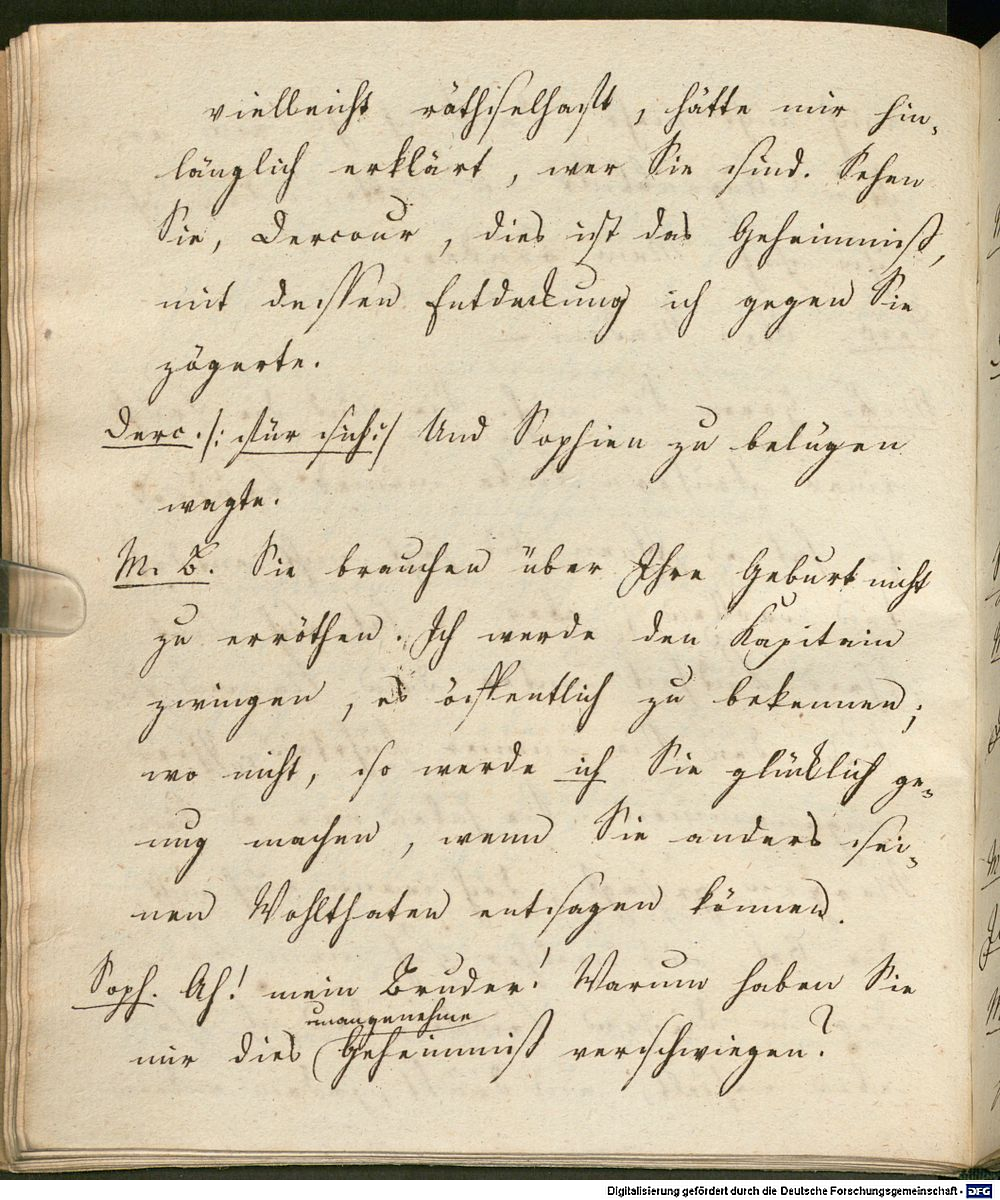 vielleicht räthselhaft, hätte mir hin-
länglich erklärt, wer Sie sind. Sehen
Sie, Dercour, dies ist das Geheimniß,
mit dessen Entdeckung ich gegen Sie
zögerte.
Derc. /: für sich :/ Und Sophien zu belügen
wagte.
M. B. Sie brauchen über Ihre Geburt nicht
zu erröthen. Ich werde den Kapitain
zwingen, es öffentlich zu bekennen;
wo nicht, so werde ich Sie glücklich ge-
nug machen, wenn Sie anders sei-
nen Wohlthaten entsagen können.
Soph. Ah! mein Bruder! Warum haben Sie
unangenehme
mir dies Geheimniß verschwiegen?
Digitalisierung gefördert durch die Deutsche Forschungsgemeinschaft - DFG